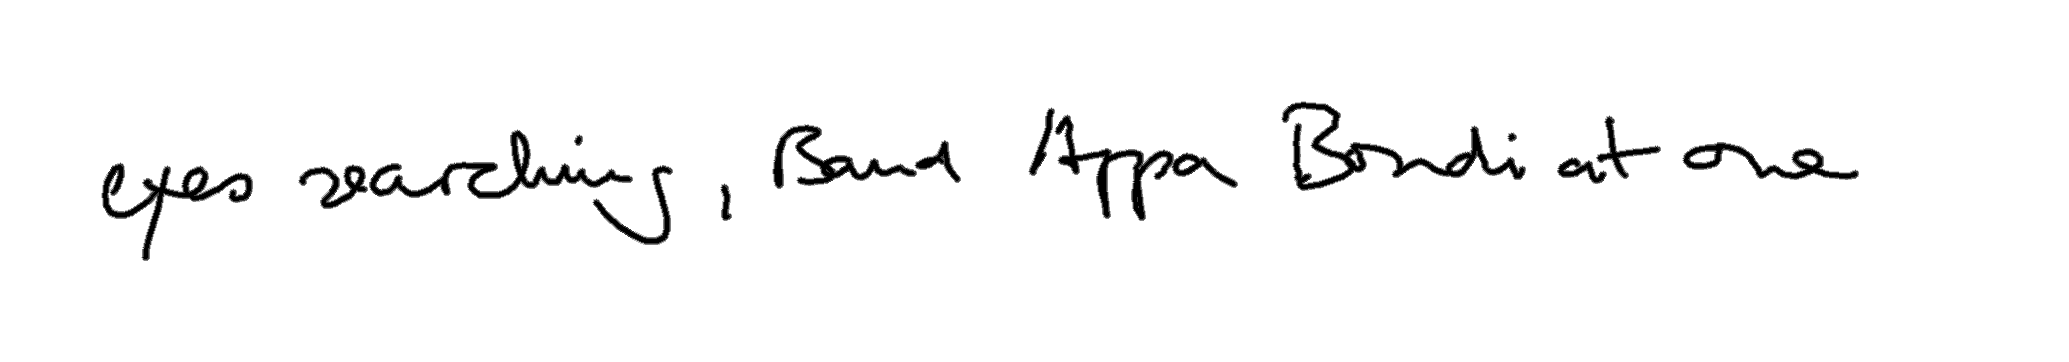 eyes searching, Band Appa Bondi at one